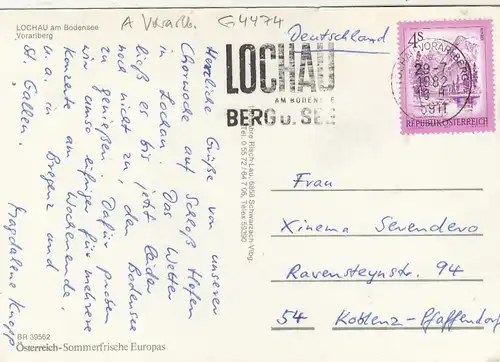 LOCHAU am Bodensee
Vorarlberg
A Vorarlb.
G4474
Deutschland
LOCHAU
AM BODENSEE
BERG U. SEE
4S
REPUBLIK ÖSTERREICH
Herzliche Grüße von unserer
Chorwoche auf Schloß Hofen
in Lochau. Das Wetter
ließ es bis jetzt leider
noch nicht zu, den Bodensee
zu genießen. Dafür proben
wir umso eifriger für mehrere
Konzerte am Wochenende,
u. a. in Bregenz und
St. Gallen.
Magdalene Knopp
Risch-Lau, 6858 Schwarzach-Vlbg.
Tel. 0 55 72 / 64 7 06, Telex 59390
Frau
Xinema Serendero
Ravensteynstr. 94
54 Koblenz-Pfaffendorf
BR 39562
Österreich-Sommerfrische Europas